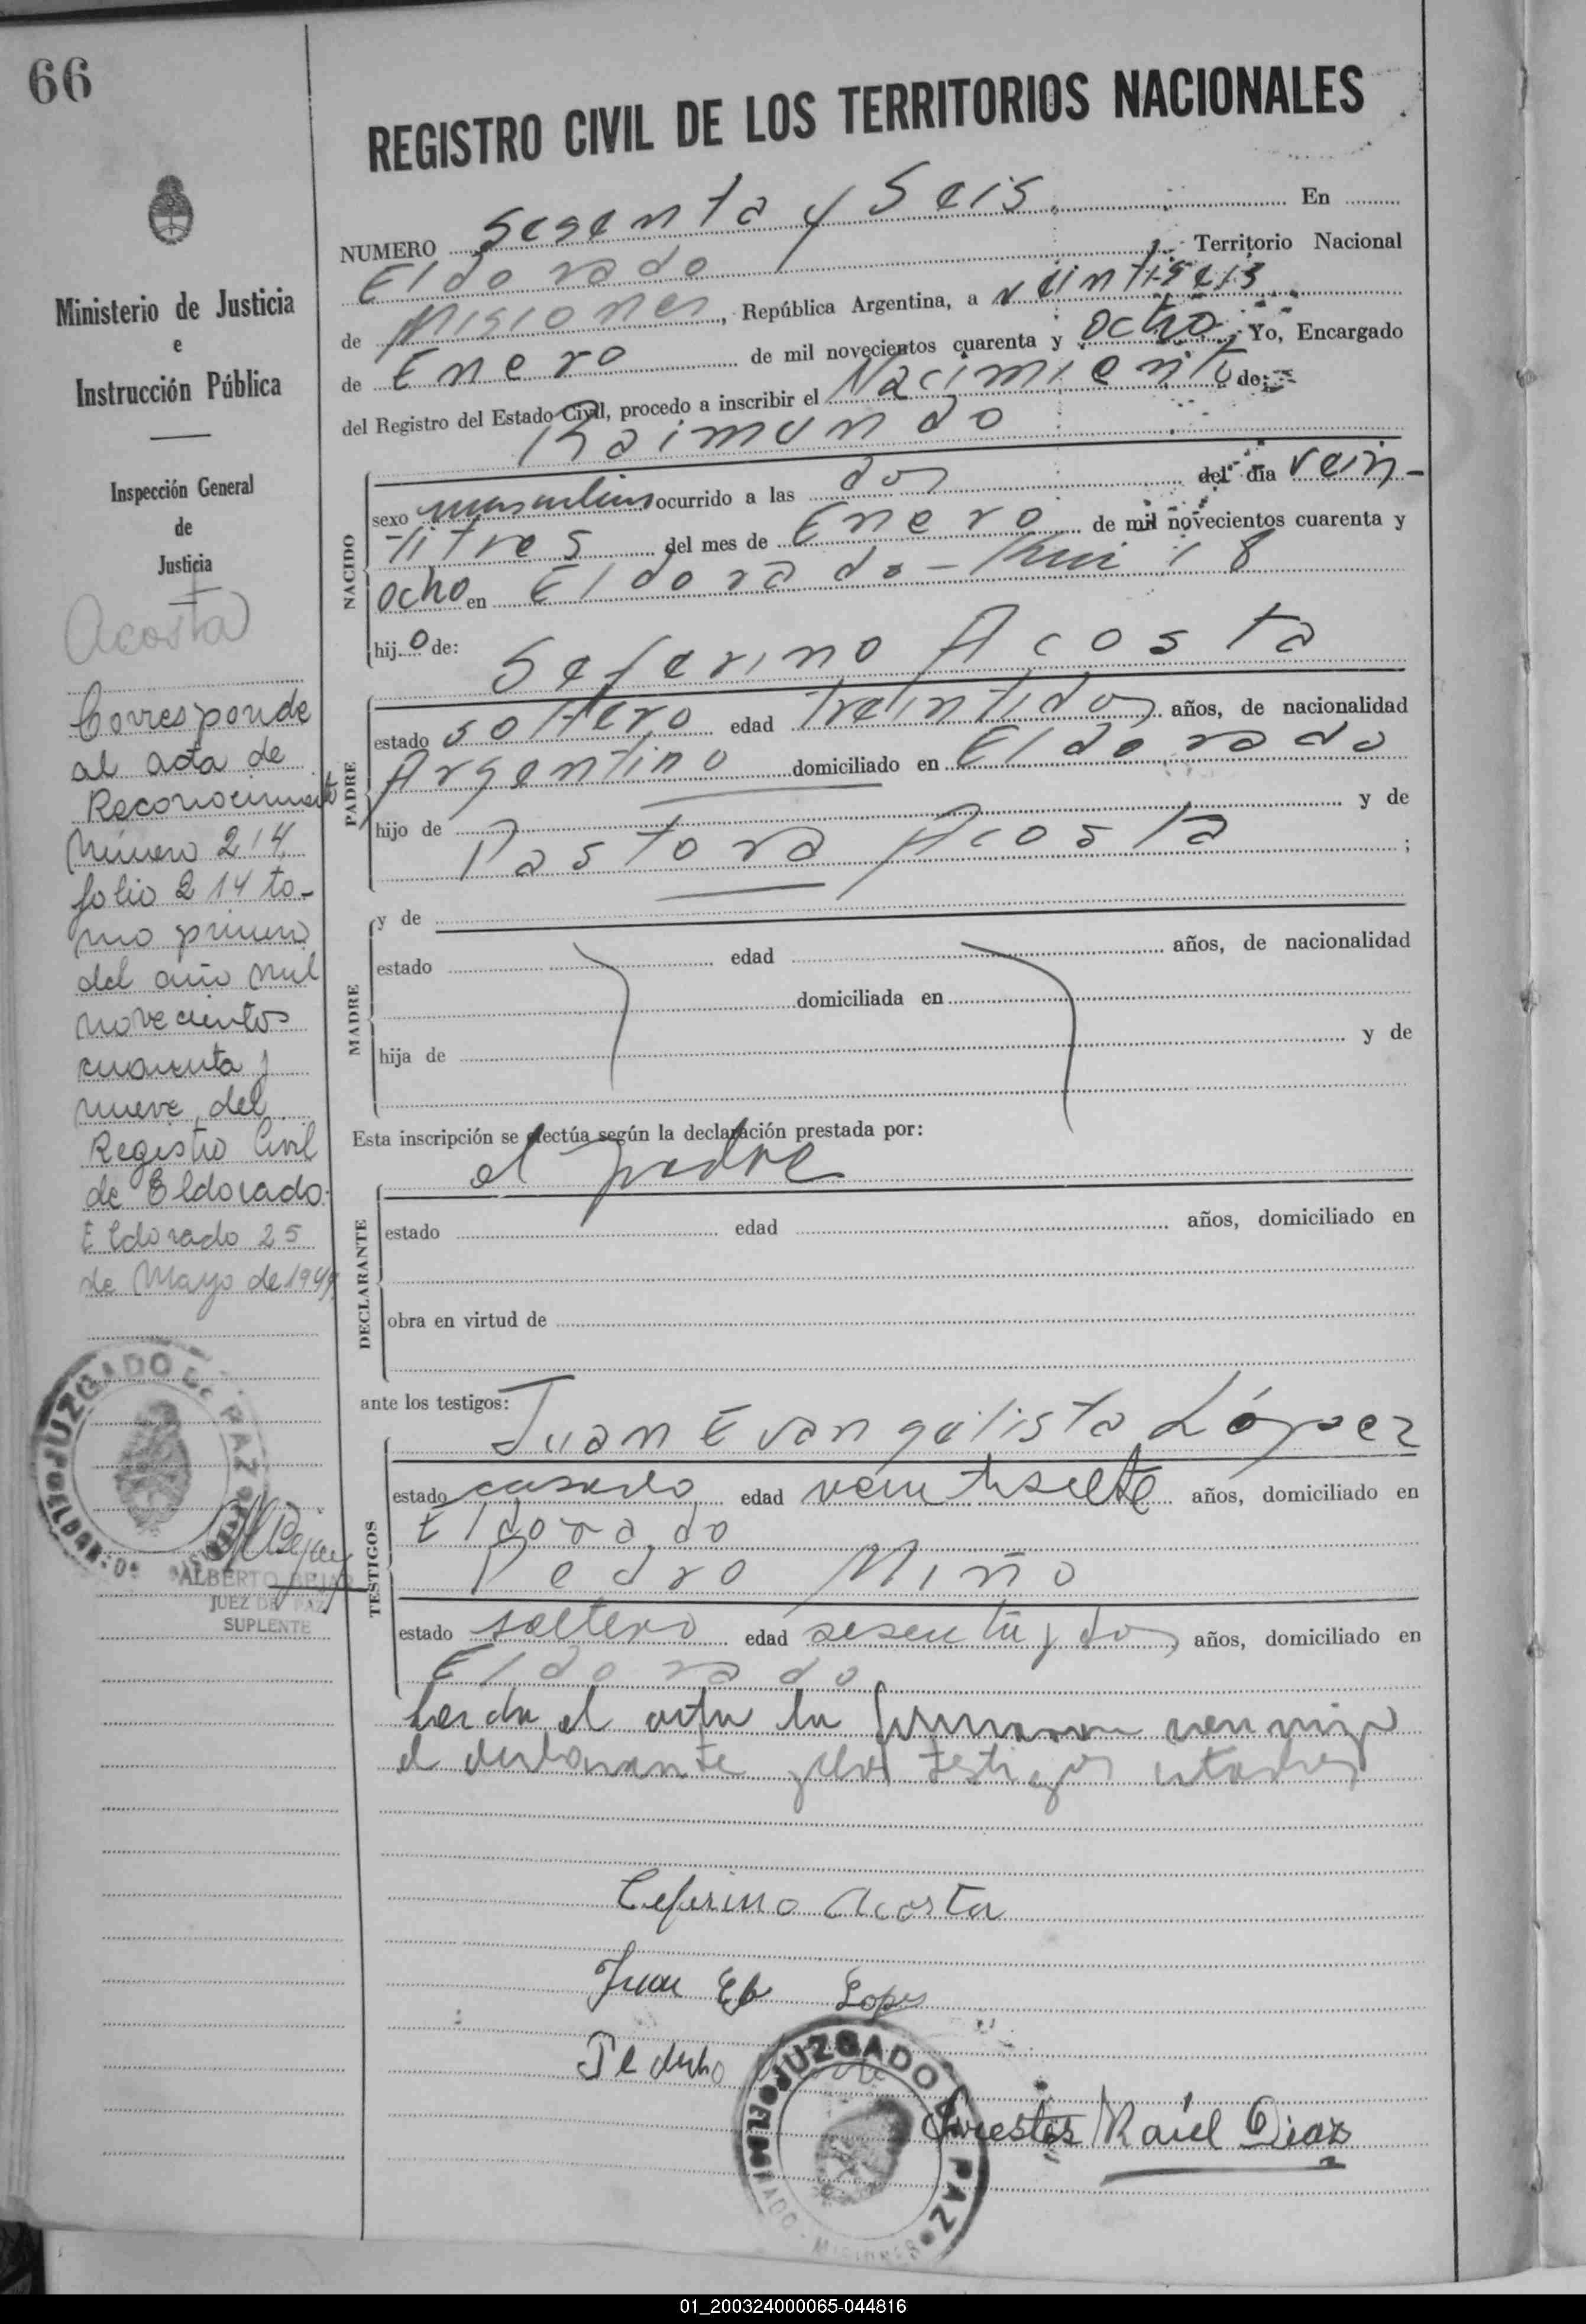 66
REGISTRO CIVIL DE LOS TERRITORIOS NACIONALES
NUMERO Sesenta y Seis. En
Eldorado Territorio Nacional
de Misiones, República Argentina, a veintiseis
de Enero de mil novecientos cuarenta y ocho Yo, Encargado
del Registro del Estado Civil, procedo a inscribir el Nacimiento de:
Raimundo
NACIDO
sexo masculino ocurrido a las dos del día vein-
titres del mes de Enero de mil novecientos cuarenta y
ocho en Eldorado - 18
hijo de: Seferino Acosta
PADRE
estado soltero edad treintidos años, de nacionalidad
Argentino domiciliado en Eldorado
hijo de y de
Pastora Acosta ;
MADRE
y de
estado edad años, de nacionalidad
domiciliada en
hija de y de
Esta inscripción se efectúa según la declaración prestada por:
el padre
DECLARANTE
estado edad años, domiciliado en
obra en virtud de
ante los testigos:
Juan Evangelista López
TESTIGOS
estado casado edad veintisiete años, domiciliado en
Eldorado
Pedro Miño
estado soltero edad sesenta y dos años, domiciliado en
Eldorado
Leida el acta la firmaron conmigo
el declarante y los testigos citados
Ceferino Acosta
Juan Ev Lopes
JUZGADO DE PAZ
Orestes Raúl Diaz
Ministerio de Justicia
e
Instrucción Pública
Inspección General
de
Justicia
Acosta
Corresponde
al acta de
Reconocimiento
Número 214
folio 214 to-
mo primero
del año mil
novecientos
cuarenta y
nueve del
Registro Civil
de Eldorado.
Eldorado 25
de Mayo de 1949
JUZGADO DE PAZ
ALBERTO BEJAR
JUEZ DE PAZ
SUPLENTE
01_200324000065-044816